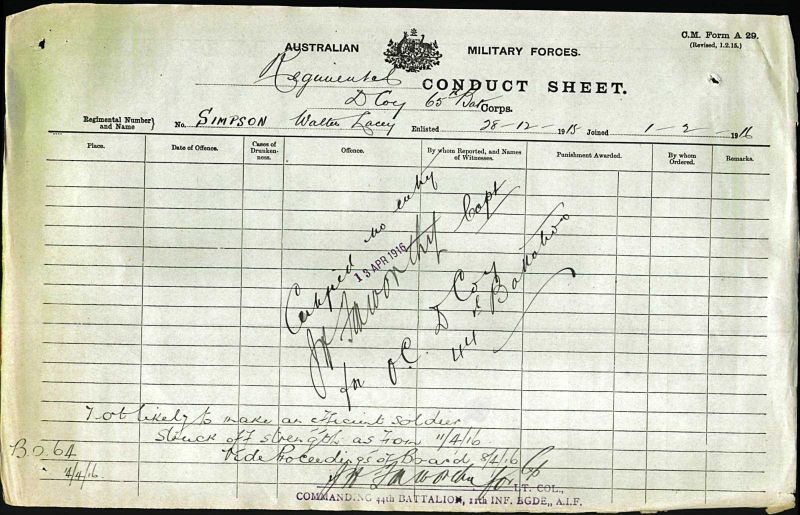 C.M. Form A 29.
(Revised, 1.2.15.)
AUSTRALIAN MILITARY FORCES.
Regimental CONDUCT SHEET.
D Coy 65th Bat Corps.
Regimental Number and Name } No. SIMPSON Walter Lacey Enlisted 28-12-1915 Joined 1-2-1916
Place. Date of Offence. Cases of Drunken-ness. Offence. By whom Reported, and Names of Witnesses. Punishment Awarded. By whom Ordered. Remarks.
Certified no entry
13 APR 1916
Capt
for O.C. D Coy
44th Battalion
Not likely to make an efficient soldier
Struck off strength as from 11/4/16
B.O. 64 Vide Proceedings of Board 8/4/16
/4/16
for LT. COL.,
COMMANDING 44th BATTALION, 11th INF. BGDE., A.I.F.